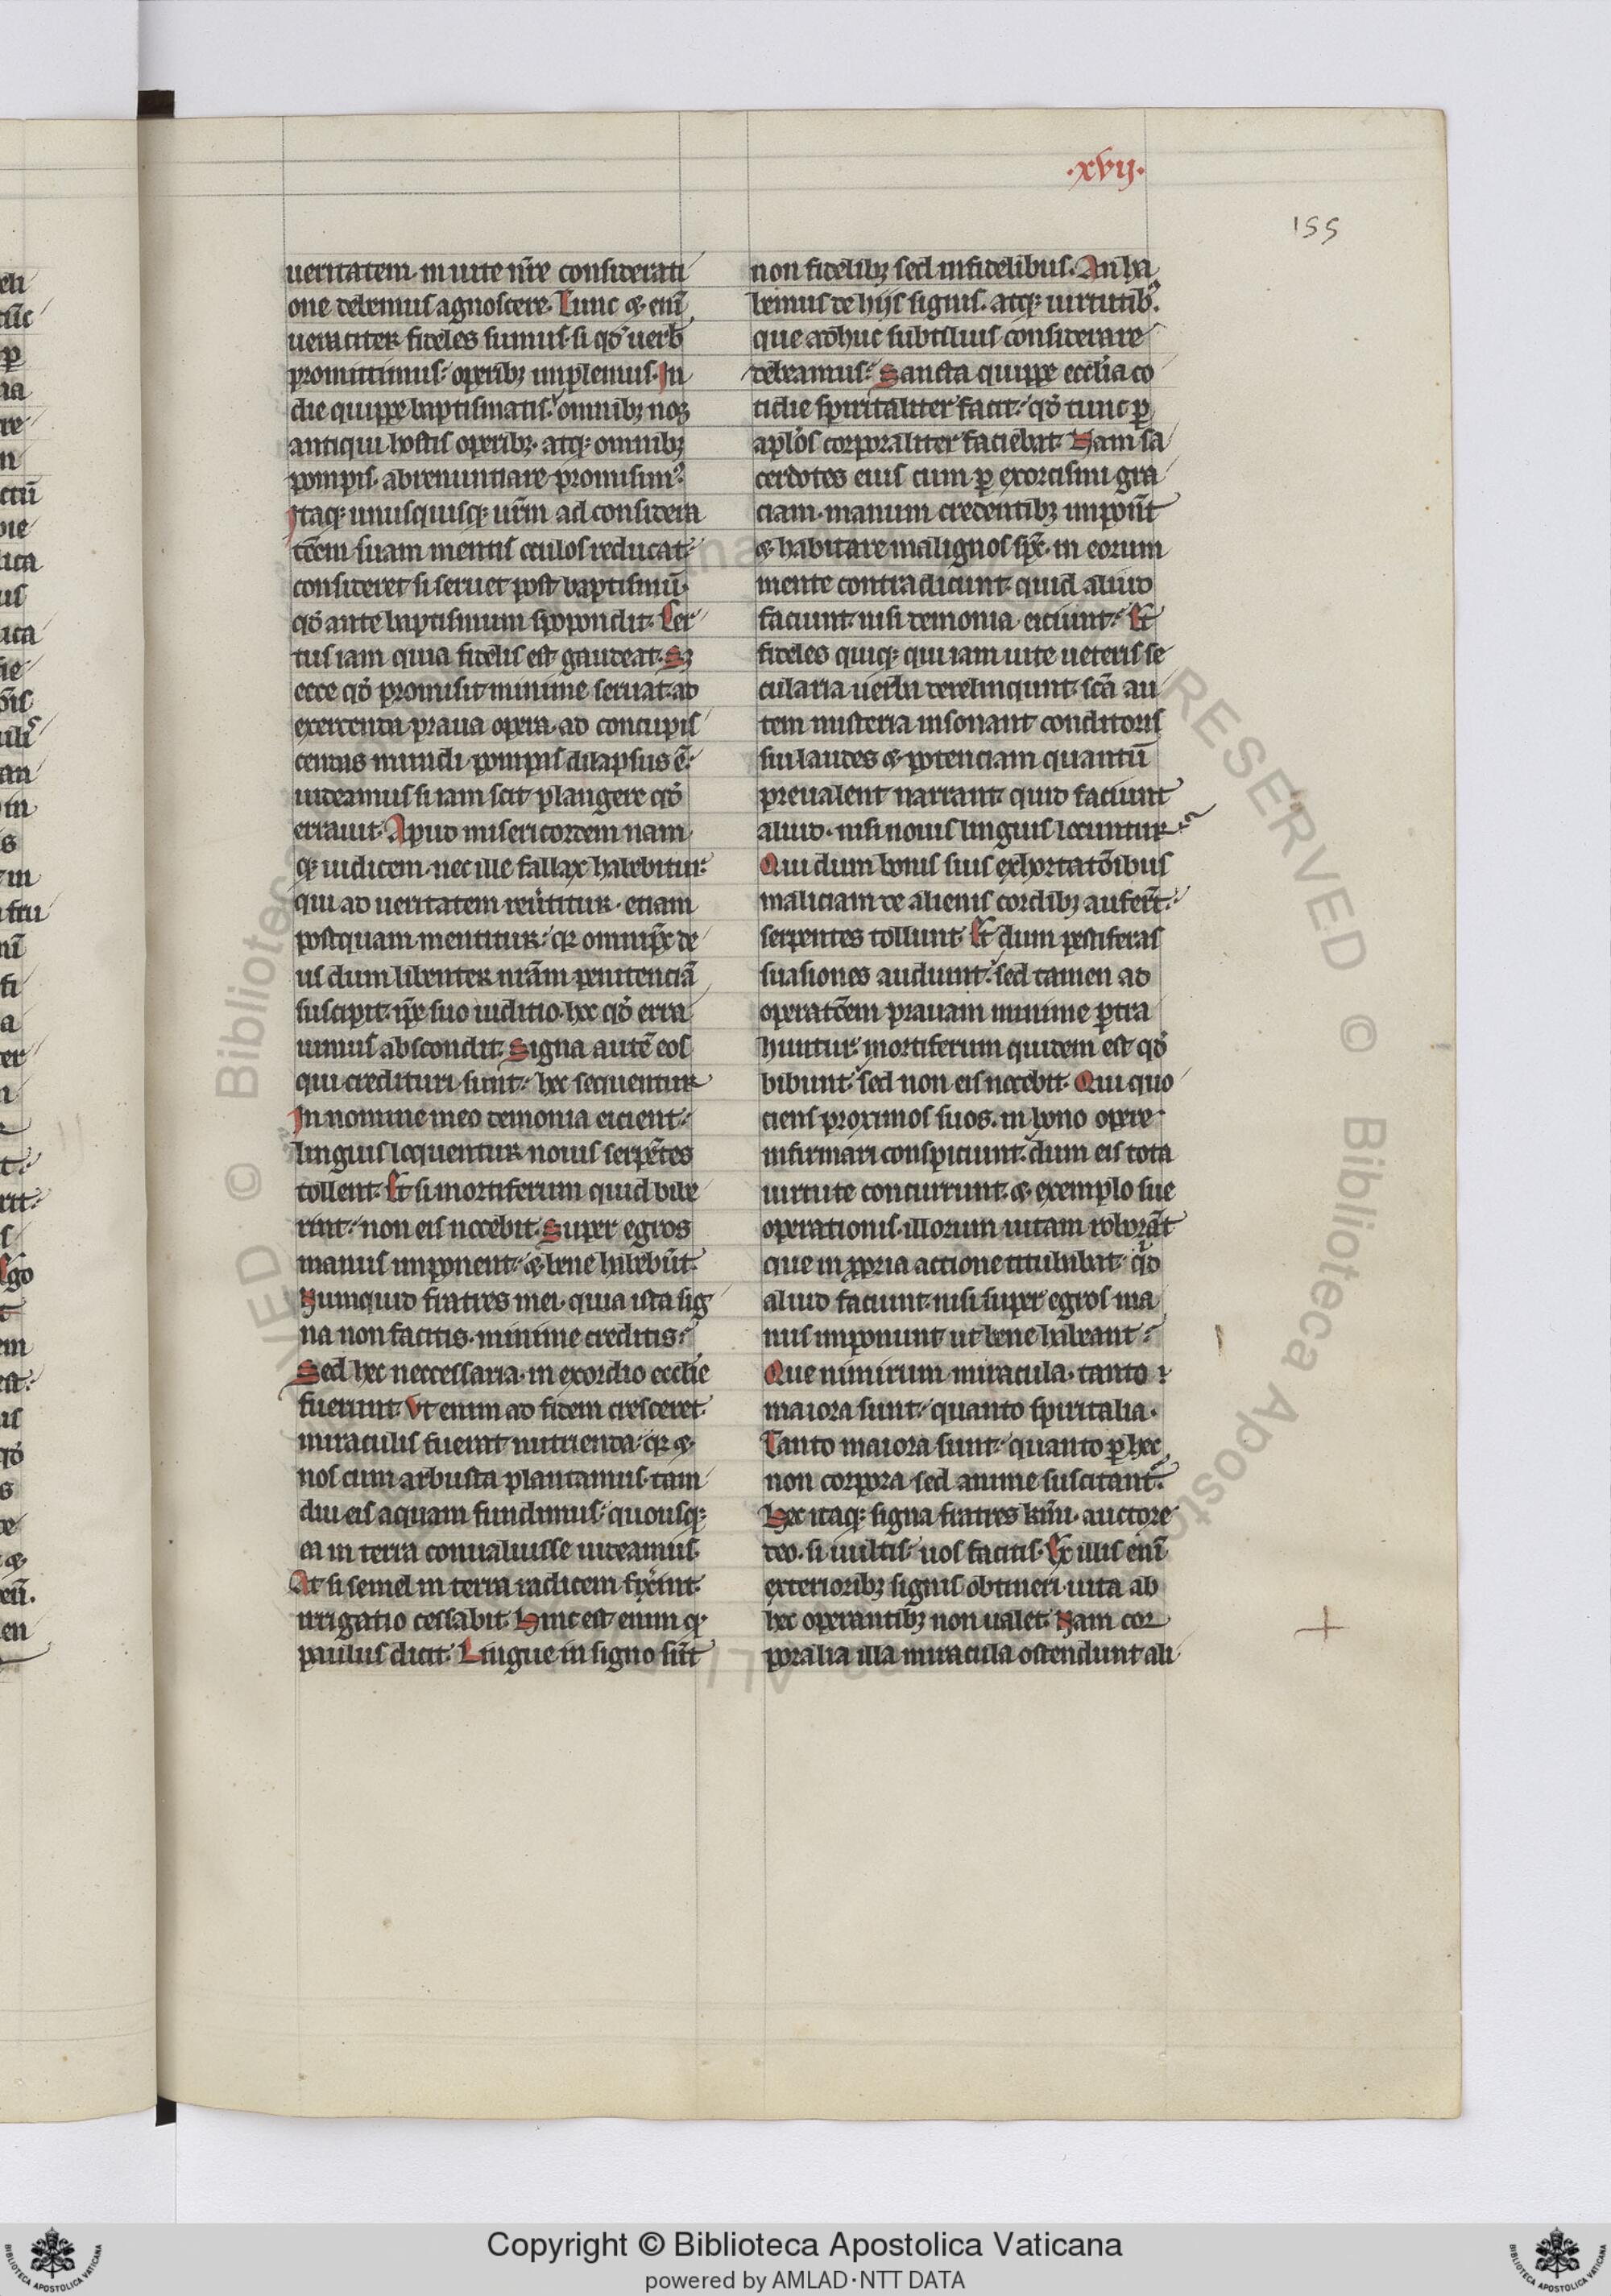 .xvij.
155
ueritatem in uite nr̄e considerati
one debemus agnoscere. Tunc ⁊ eni᷑
ueraciter fideles sumus si qd̓ uerb̓
promittimus operibꝫ implemus. In
die quippe baptismatis omnibꝫ nos
antiqui hostis operibꝫ atqꝫ omnibꝫ
pompis abrenuntiare promisimꝰ.
Itaqꝫ unusquisqꝫ ur̄m ad considera
tōem suam mentis oculos reducat.
consideret si seruet post baptismū
qd̓ ante baptismum spopondit. Cer
tus iam quia fidelis est gaudeat. Sꝫ
ecce qd̓ promisit minime seruat. ad
exercenda praua opera. ad concupis
centias mundi pompas dilapsus ē.
uideamus si iam scit plangere qd̓
errauit. Apud misericordem nam
qꝫ iudicem. nec ille fallax habebitur
qui ad ueritatem reu̓titur. etiam
postquam mentitur. qꝛ omnip̄s de
us dum libenter nr̄am penitenciā
suscipit. ip̄e suo iuditio hoc qd̓ erra
uimus abscondit. Signa autē eos
qui credituri sunt. hec sequentur
In nomine meo demonia eicient.
linguis loquentur nouis serpētes
tollent. Et si mortiferum quid bibe
rint. non eis nocebit. Super egros
manus imponent. ⁊ bene habebūt.
Numquid fratres mei. quia ista sig
na non facitis. minime creditis.
Sed hec neccessaria. in exordio eccl̓ie
fuerunt. Vt enim ad fidem cresceret.
miraculis fuerat nutrienda. qꝛ ⁊
nos cum arbusta plantamus. tam
diu eis aquam fundimus. quousqꝫ
ea in terra conualuisse uideamus.
At si semel in terra radicem fixe̓int.
irrigatio cessabit. Hinc est enim qꝫ
paulus dicit. Lingue in signo sūt
non fidelibꝫ sed infidelibus. An ha
bemus de hijs signis. atqꝫ uirtutibꝰ.
que adhuc subtilius considerare
debeamus. Sancta quippe eccl̓ia co
tidie spiritaliter facit. qd̓ tunc ꝑ
apl̓os corporaliter faciebat. Nam sa
cerdotes eius cum ꝑ exorcismi gra
ciam. manum credentibꝫ imponūt
⁊ habitare malignos sp̄c. in eorum
mente contradicunt. quid aliud
faciunt. nisi demonia eiciunt. Et
fideles quiqꝫ qui iam uite ueteris se
cularia uerba derelinqunt. scā au
tem misteria insonant conditoris
sui laudes ⁊ potenciam quantū
preualent narrant. quid faciunt
aliud. nisi nouis linguis locuntur
Qui dum bonis suis exhortatōibus
maliciam de alienis cordibꝫ aufer̄t.
serpentes tollunt. Et dum pestiferas
suasiones audiunt. sed tamen ad
operatōem prauam minime ꝑtra
huntur. mortiferum quidem est qd̓
bibunt. sed non eis nocebit. Qui quo
ciens proximos suos. in bono opere
infirmari conspiciunt. dum eis tota
uirtute concurrunt. ⁊ exemplo sue
operationis. illorum uitam roborāt
que in ꝓpria actione titubabat. qd̓
aliud faciunt. nisi super egros ma
nus imponunt ut bene habeant.
Que nimirum miracula. tanto
maiora sunt. quanto spiritalia.
Tanto maiora sunt. quanto ꝑ hec
non corpora sed anime suscitant᷑.
Hec itaqꝫ signa fratres km̄i. auctore
deo. si uultis. uos facitis. Ex illis eni᷑
exterioribꝫ signis obtineri uita ab
hec operantibꝫ non ualet. Nam cor
poralia illa miracula ostendunt ali
Copyright © Biblioteca Apostolica Vaticana
powered by AMLAD·NTT DATA